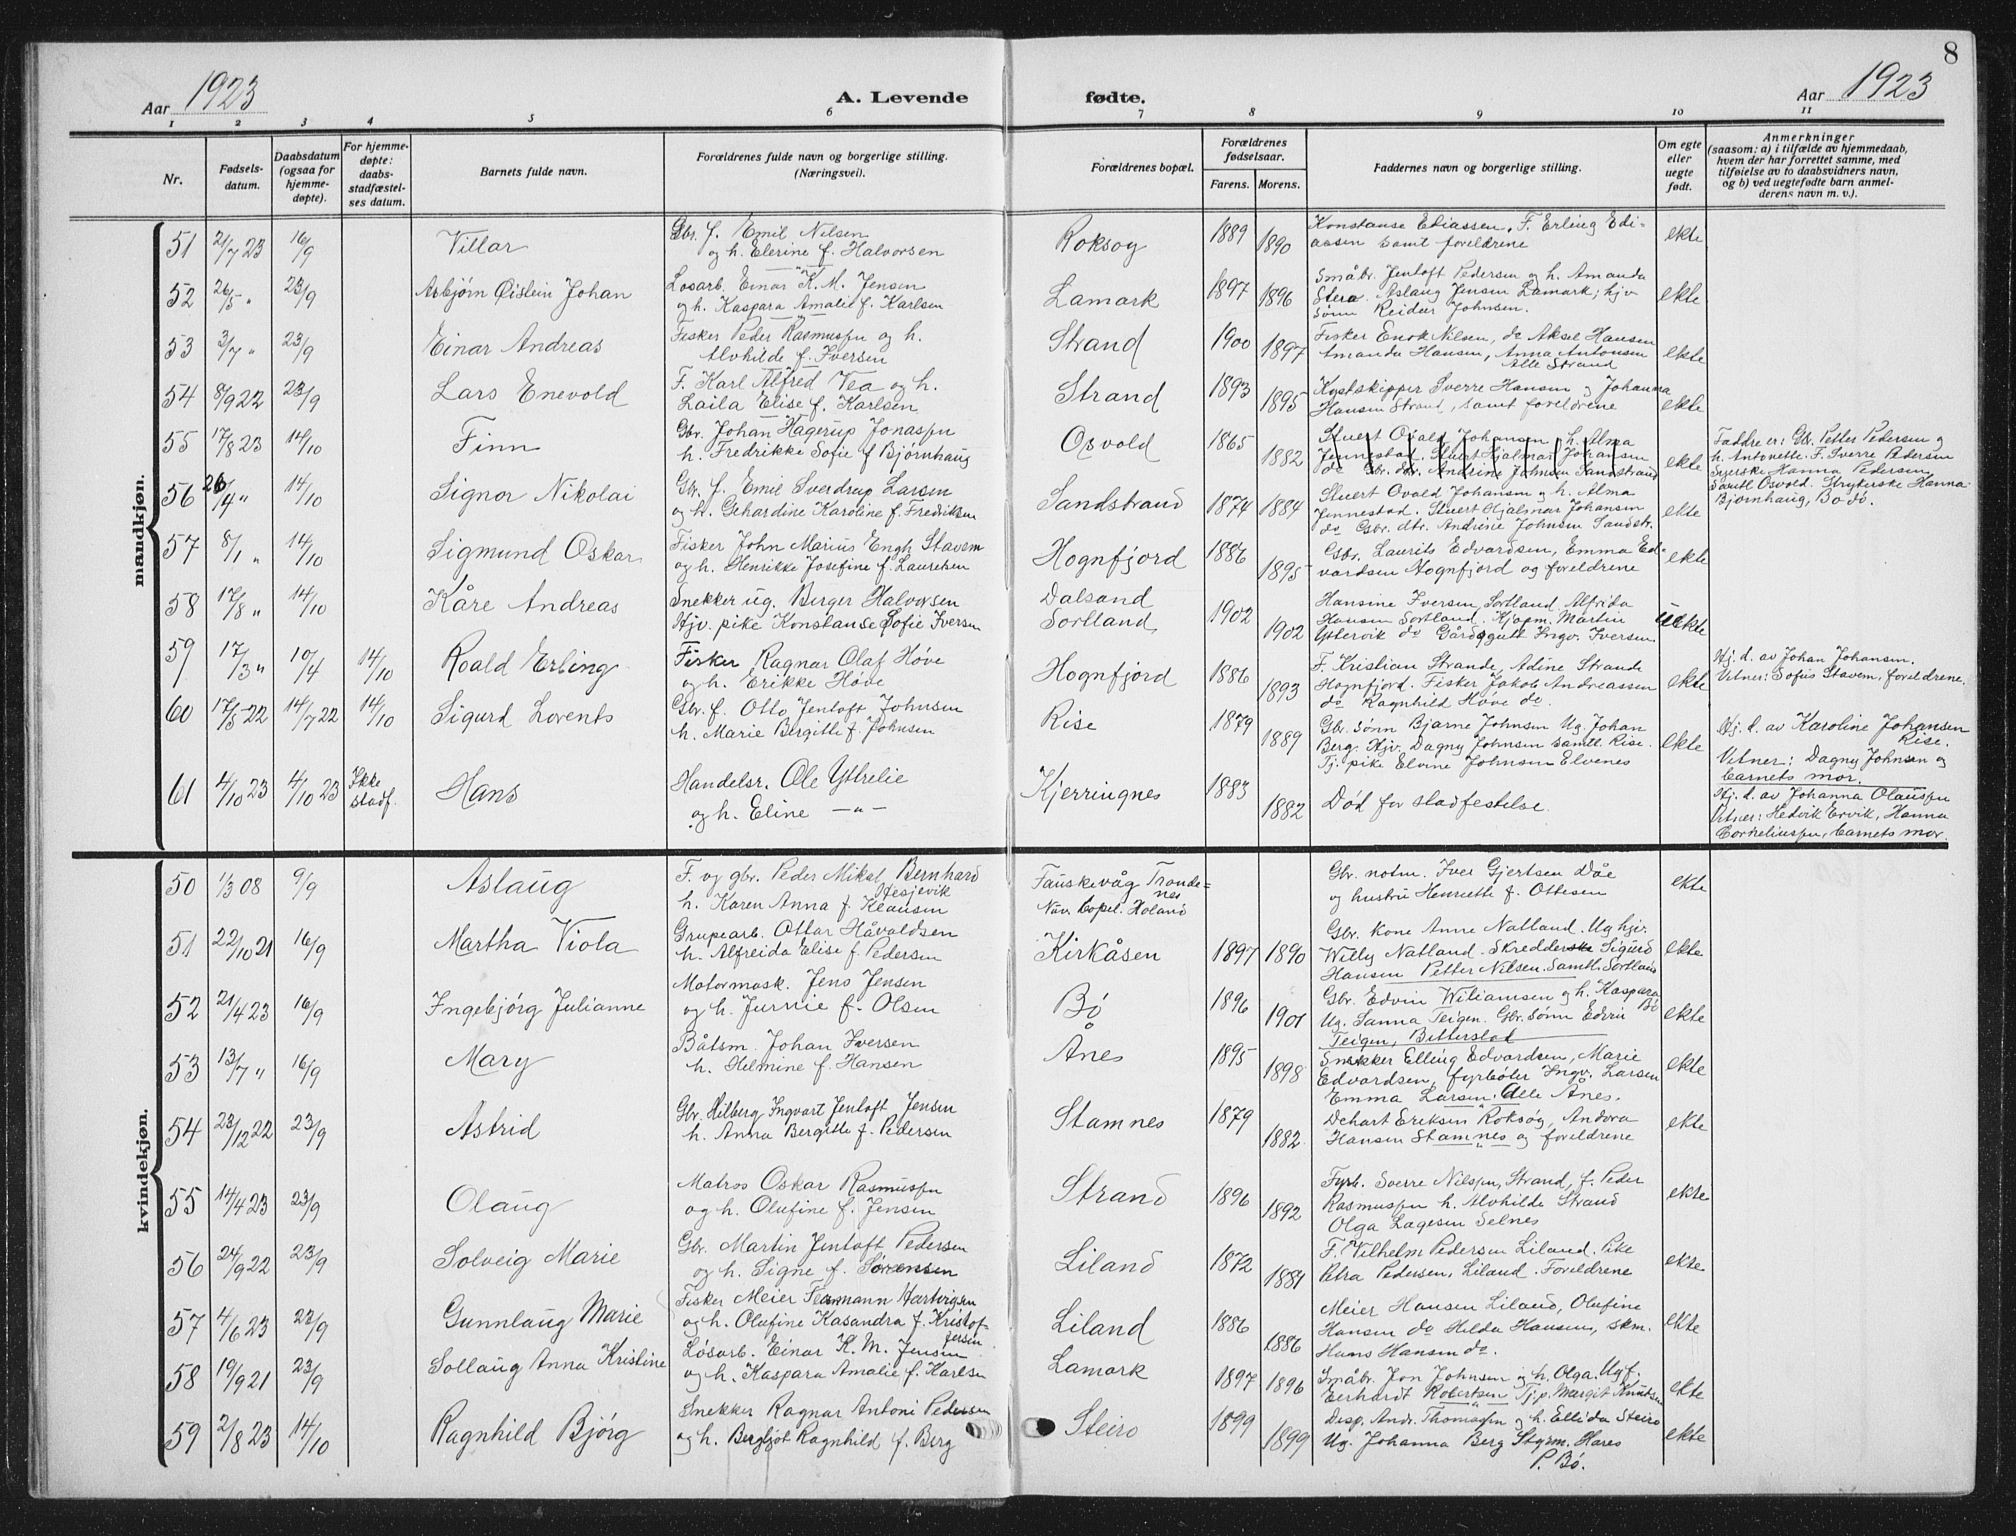 8
Aar 1923
A. Levende fødte.
Aar 1923
1 2 3 4 5 6 7 8 9 10 11
Nr.
Fødsels-
datum.
Daabsdatum
(ogsaa for
hjemme-
døpte).
For hjemme-
døpte:
daabs-
stadfæstel-
ses datum.
Barnets fulde navn.
Forældrenes fulde navn og borgerlige stilling.
(Næringsvei).
Forældrenes bopæl.
Forældrenes
fødselsaar.
Farens. Morens.
Faddernes navn og borgerlige stilling.
Om egte
eller
uegte
født.
Anmerkninger
(saasom: a) i tilfælde av hjemmedaab,
hvem der har forrettet samme, med
tilføielse av to daabsvidners navn,
og b) ved uegtefødte barn anmel-
derens navn m. v.).
mandkjøn.
51 21/7 23 16/9 Villar
Gbr. f. Emil Nilsen
og h. Elerine f. Halvorsen
Roksog 1889 1890
Konstanse Ediassen, F. Erling Edi-
assen samt foreldrene
ekte
52 26/5 " 23/9 Asbjørn Øistein Johan
Løsarb. Einar K. M. Jensen
og h. Kaspara Amalie f. Karlsen
Lamark 1897 1896
Småbr. Jentoft Pedersen og h. Amanda
Stera. Aslaug Jensen Lamark; hjv
Sønn Reidar Johnsen.
ekte
53 3/7 " 23/9 Einar Andreas
Fisker Peder Rasmussen og h.
Alvhilde f. Iversen
Strand 1900 1897
Fisker Enok Nilsen, do Aksel Hansen
Amanda Hansen, Anna Antonsen
Alle Strand
ekte
54 8/9 22 23/9 Lars Enevold
F. Karl Alfred Vea og h.
Laila Elise f. Karlsen
Strand 1893 1895
Kystskipper Sverre Hansen og Johanna
Hansen Strand, samt foreldrene
ekte
55 17/8 23 14/10 Finn
Gbr. Johan Hagerup Jonassen
h. Fredrikke Sofie f Bjørnhaug
Osvold 1865 1882
Stuert Ovald Johansen og h. Alma
Jennestad. Stuert Hjalmar Johansen
do Gbr. dtr. Andrine Johnsen Sandstrand
ekte
Faddre er: Gbr. Petter Pedersen og
h. Antonette. F. Sverre Pedersen
Syerske Hanna Pedersen
Samtl Osvold. Strykerske Hanna
Bjørnhaug, Bodø.
56 26/4 " 14/10 Signor Nikolai
Gbr. f. Emil Sverdrup Larsen
og h. Gehardine Karoline f. Fredriksen
Sandstrand 1874 1884
Stuert Ovald Johansen og h. Alma
Jennestad. Stuert Hjalmar Johansen
do Gbr. dtr. Andrine Johnsen Sandstr.
ekte
57 8/1 " 14/10 Sigmund Oskar
Fisker John Marius Engh Stavem
og h. Henrikke Josefine f. Lauretsen
Hognfjord 1886 1895
Gbr. Laurits Edvardsen, Emma Ed-
vardsen Hognfjord og foreldrene
ekte
58 17/8 " 14/10 Kåre Andreas
Snekker ug. Berger Halvorsen
Hjv. pike Konstanse Sofie Iversen
Dalsand
Sortland
1902 1902
Hansine Iversen, Sortland. Alfrida
Hansen Sortland. Kjøpm. Martin
Ytlervik do Gårdsgutt Ingv. Iversen
Uekte
59 17/3 " 10/4 14/10 Roald Erling
Fisker Ragnar Olaf Høve
og h. Erikke Høve
Hognfjord 1886 1893
F. Kristian Strande, Adine Strande
Hognfjord. Fisker Jakob Andreassen
do Ragnhild Høve do.
ekte
Hj. d. av Johan Johansen.
Vitner: Sofus Stavem, foreldrene.
60 17/5-22 14/7 22 14/10 Sigurd Lorents
Gbr. f. Otto Jentoft Johnsen
h. Marie Bergitte f. Johnsen
Rise 1879 1889
Gbr. sønn Bjarne Johnsen Ug. Johan
Berg. Hjv. Dagny Johnsen samtl. Rise.
Tj. pike Elvine Johnsen Elvenes
ekte
Hj. d. av Karoline Johansen
Rise.
Vitner: Dagny Johnsen og
barnets mor.
61 4/10 23 4/10 23 Ikke
stadf.
Hans
Handelsr. Ole Ytrelie
og h. Eline —"—
Kjerringnes 1883 1882
Død før stadfestelse.
Hj. d. av Johanna Olaussen
Vitner: Hedvik Ervik, Hanna
Corneliussen, barnets mor.
kvindekjøn.
50 1/3 08 9/9 Aslaug
F. og gbr. Peder Mikal Bernhard
Hesjevik
h. Karen Anna f. Klausen
Fauskevåg Tronde-
nes
Nuv. bopel. Holand
Gbr. notm. Iver Gjertsen Dåe
og hustru Henriette f. Ottesen
ekte
51 22/10 21 16/9 Martha Viola
Grupearb. Ottar Håvaldsen
h. Alfreida Elise f. Pedersen
Kirkåsen 1897 1890
Gbr. kone Anne Natland. Ug hjv.
Willy Natland. Skredder Sigurd
Hansen Petter Nilsen. Samtl. Sortland
ekte
52 21/4 23 16/9 Ingebjørg Julianne
Motormask. Jens Jensen
og h. Jurvie f. Olsen
Bø 1896 1901
Gbr. Edvin Wiliamsen og h. Kaspara
Bø
Ug. Sanna Teigen. Gbr. sønn Edvin
Teigen, Bitterstad
ekte
53 13/7 " 16/9 Mary
Båtsm. Johan Iversen
h. Helmine f. Hansen
Ånes 1895 1898
Snekker Elling Edvardsen, Marie
Edvardsen, fyrbøter Ingv. Larsen
Emma Larsen. Alle Ånes.
ekte
54 23/12 22 23/9 Astrid
Gbr Hilberg Ingvart Jentoft Jensen
h. Anna Bergitte f. Pedersen
Stamnes 1879 1882
Dehart Eriksen Roksøg, Andora
Hansen Stamnes og foreldrene
ekte
55 14/4 23 23/9 Olaug
Matros Oskar Rasmussen
og h. Olufine f. Jensen
Strand 1896 1892
Fyrb. Sverre Nilssen, Strand, f. Peder
Rasmussen h. Alvhilde Strand
Olga Lagesen Selnes
ekte
56 24/9 22 23/9 Solveig Marie
Gbr. Martin Jentoft Pedersen
og h. Signe f. Sørensen
Liland 1872 1884
F. Vilhelm Pedersen Liland. Pike
Petra Pedersen, Liland. Foreldrene
ekte
57 4/6 23 23/9 Gunnlaug Marie
Fisker Meier Teormann Hartvigsen
og h. Olufine Kasandra f. Kristof-
fersen
Liland 1886 1886
Meier Hansen Liland, Olufine
Hansen do Hilda Hansen, skm.
Hans Hansen do.
ekte
58 19/9 21 23/9 Sollaug Anna Kristine
Løsarb. Einar K. M. Jensen
og h. Kaspara Amalie f. Karlsen
Lamark 1897 1896
Småbr. Jon Johnsen og h. Olga. Ugf.
Eerhardt Robertsen Tj.p. Margit Knutsen
ekte
59 2/8 23 14/10 Ragnhild Bjørg
Snekker Ragnar Antoni Pedersen
og h. Bergljot Ragnhild f. Berg
Steiro 1899 1899
Disp. Andr. Thomassen og h. Ellida Steiro
Ug. Johanna Berg Styrm. Hares
P. Bø.
ekte